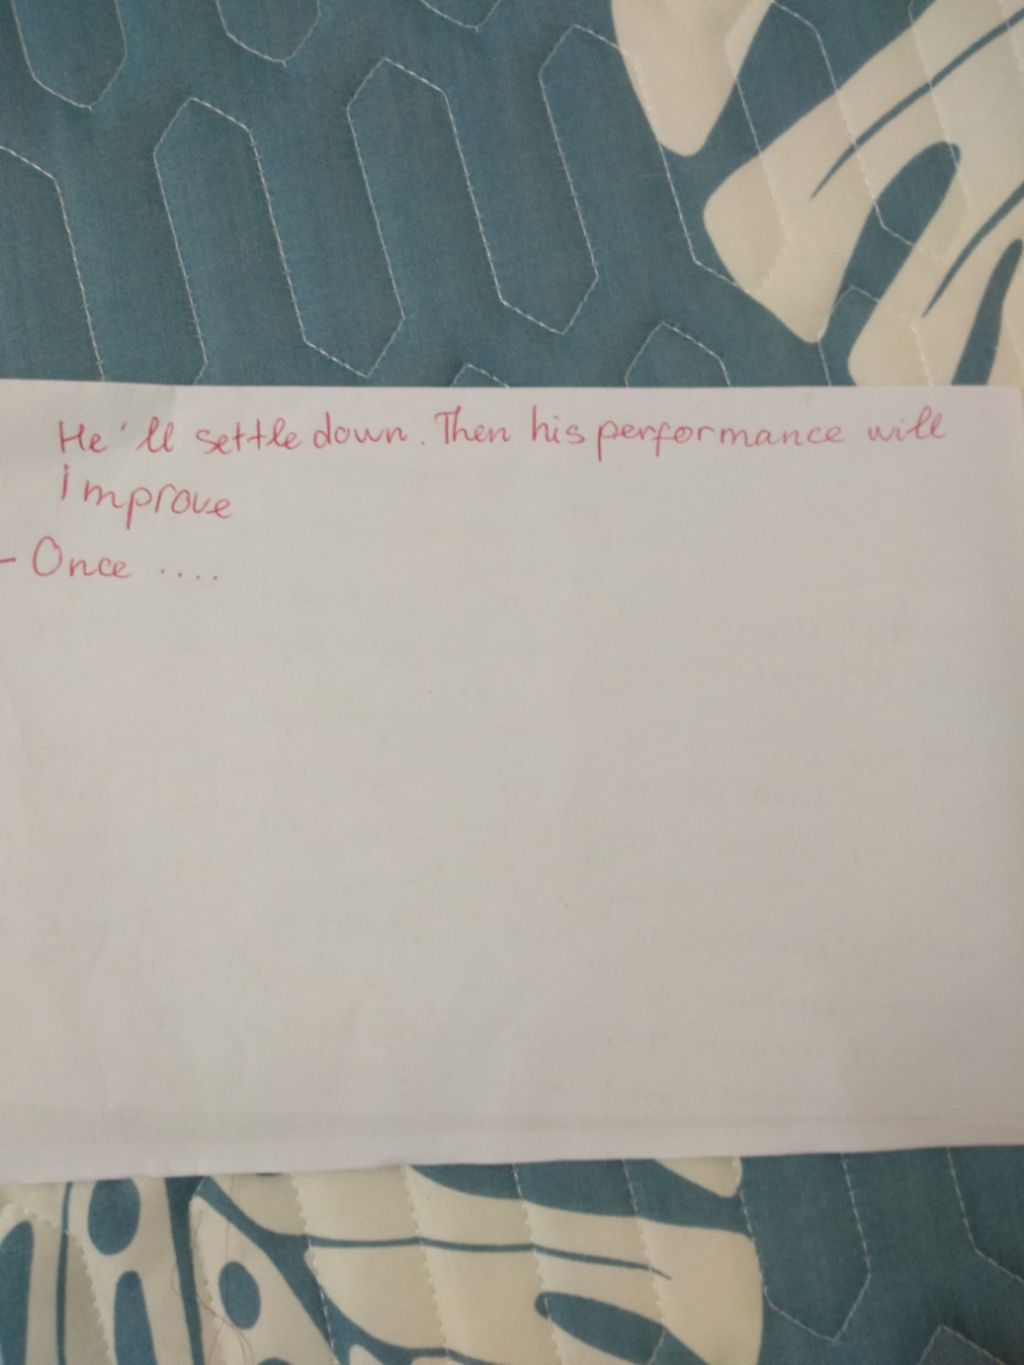 He'll settle down. Then his performance will
Improve
- Once ....